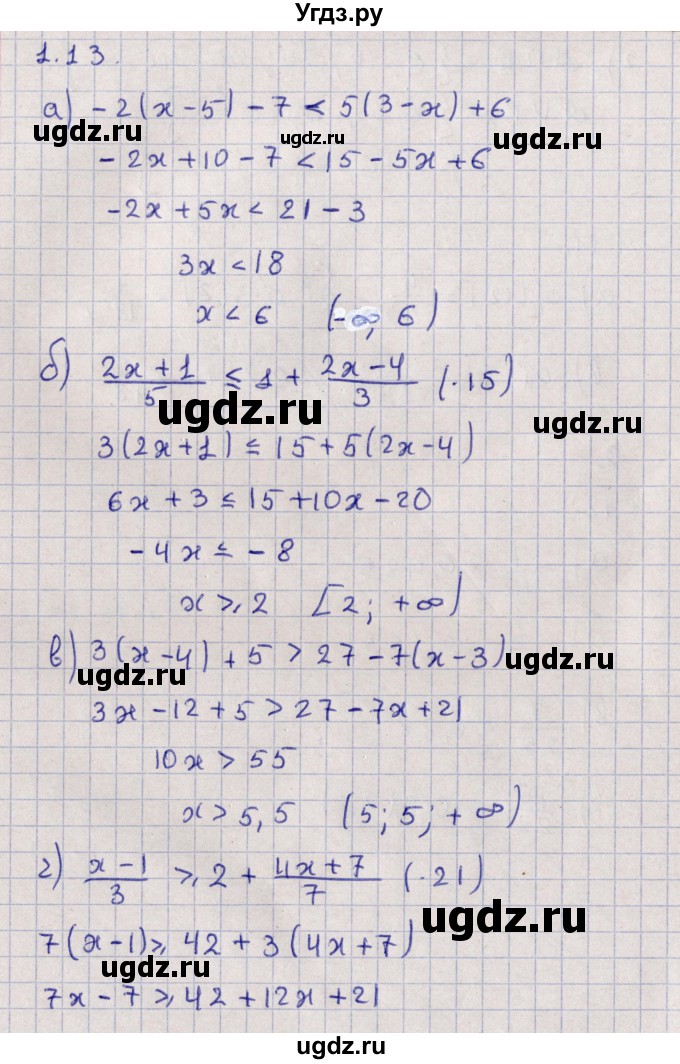 Угдз.ру
1.13.
а) -2(x-5)-7<5(3-x)+6
-2x+10-7<15-5x+6
-2x+5x<21-3
3x<18
x<6 (-∞; 6)
б) (2x+1)/5 ≤ 1 + (2x-4)/3 (·15)
3(2x+1) ≤ 15+5(2x-4)
6x+3 ≤ 15+10x-20
-4x ≤ -8
x ≥ 2 [2; +∞)
в) 3(x-4)+5>27-7(x-3)
3x-12+5>27-7x+21
10x>55
x>5,5 (5;5;+∞)
г) (x-1)/3 ≥ 2 + (4x+7)/7 (·21)
7(x-1) ≥ 42+3(4x+7)
7x-7 ≥ 42+12x+21
ugdz.ru
ugdz.ru
ugdz.ru
ugdz.ru
ugdz.ru
ugdz.ru
ugdz.ru
ugdz.ru
ugdz.ru
ugdz.ru
ugdz.ru